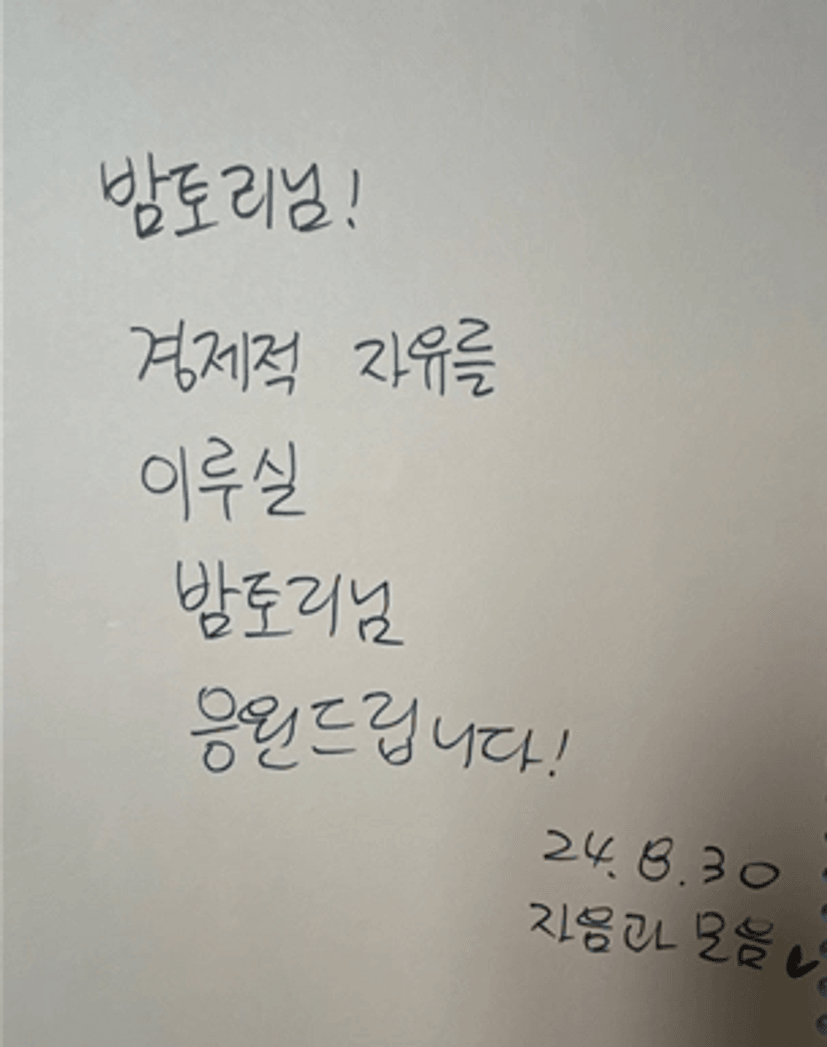 밤토리님!
경제적 자유를
이루실
밤토리님
응원드립니다!
24. 8. 30
자음과 모음